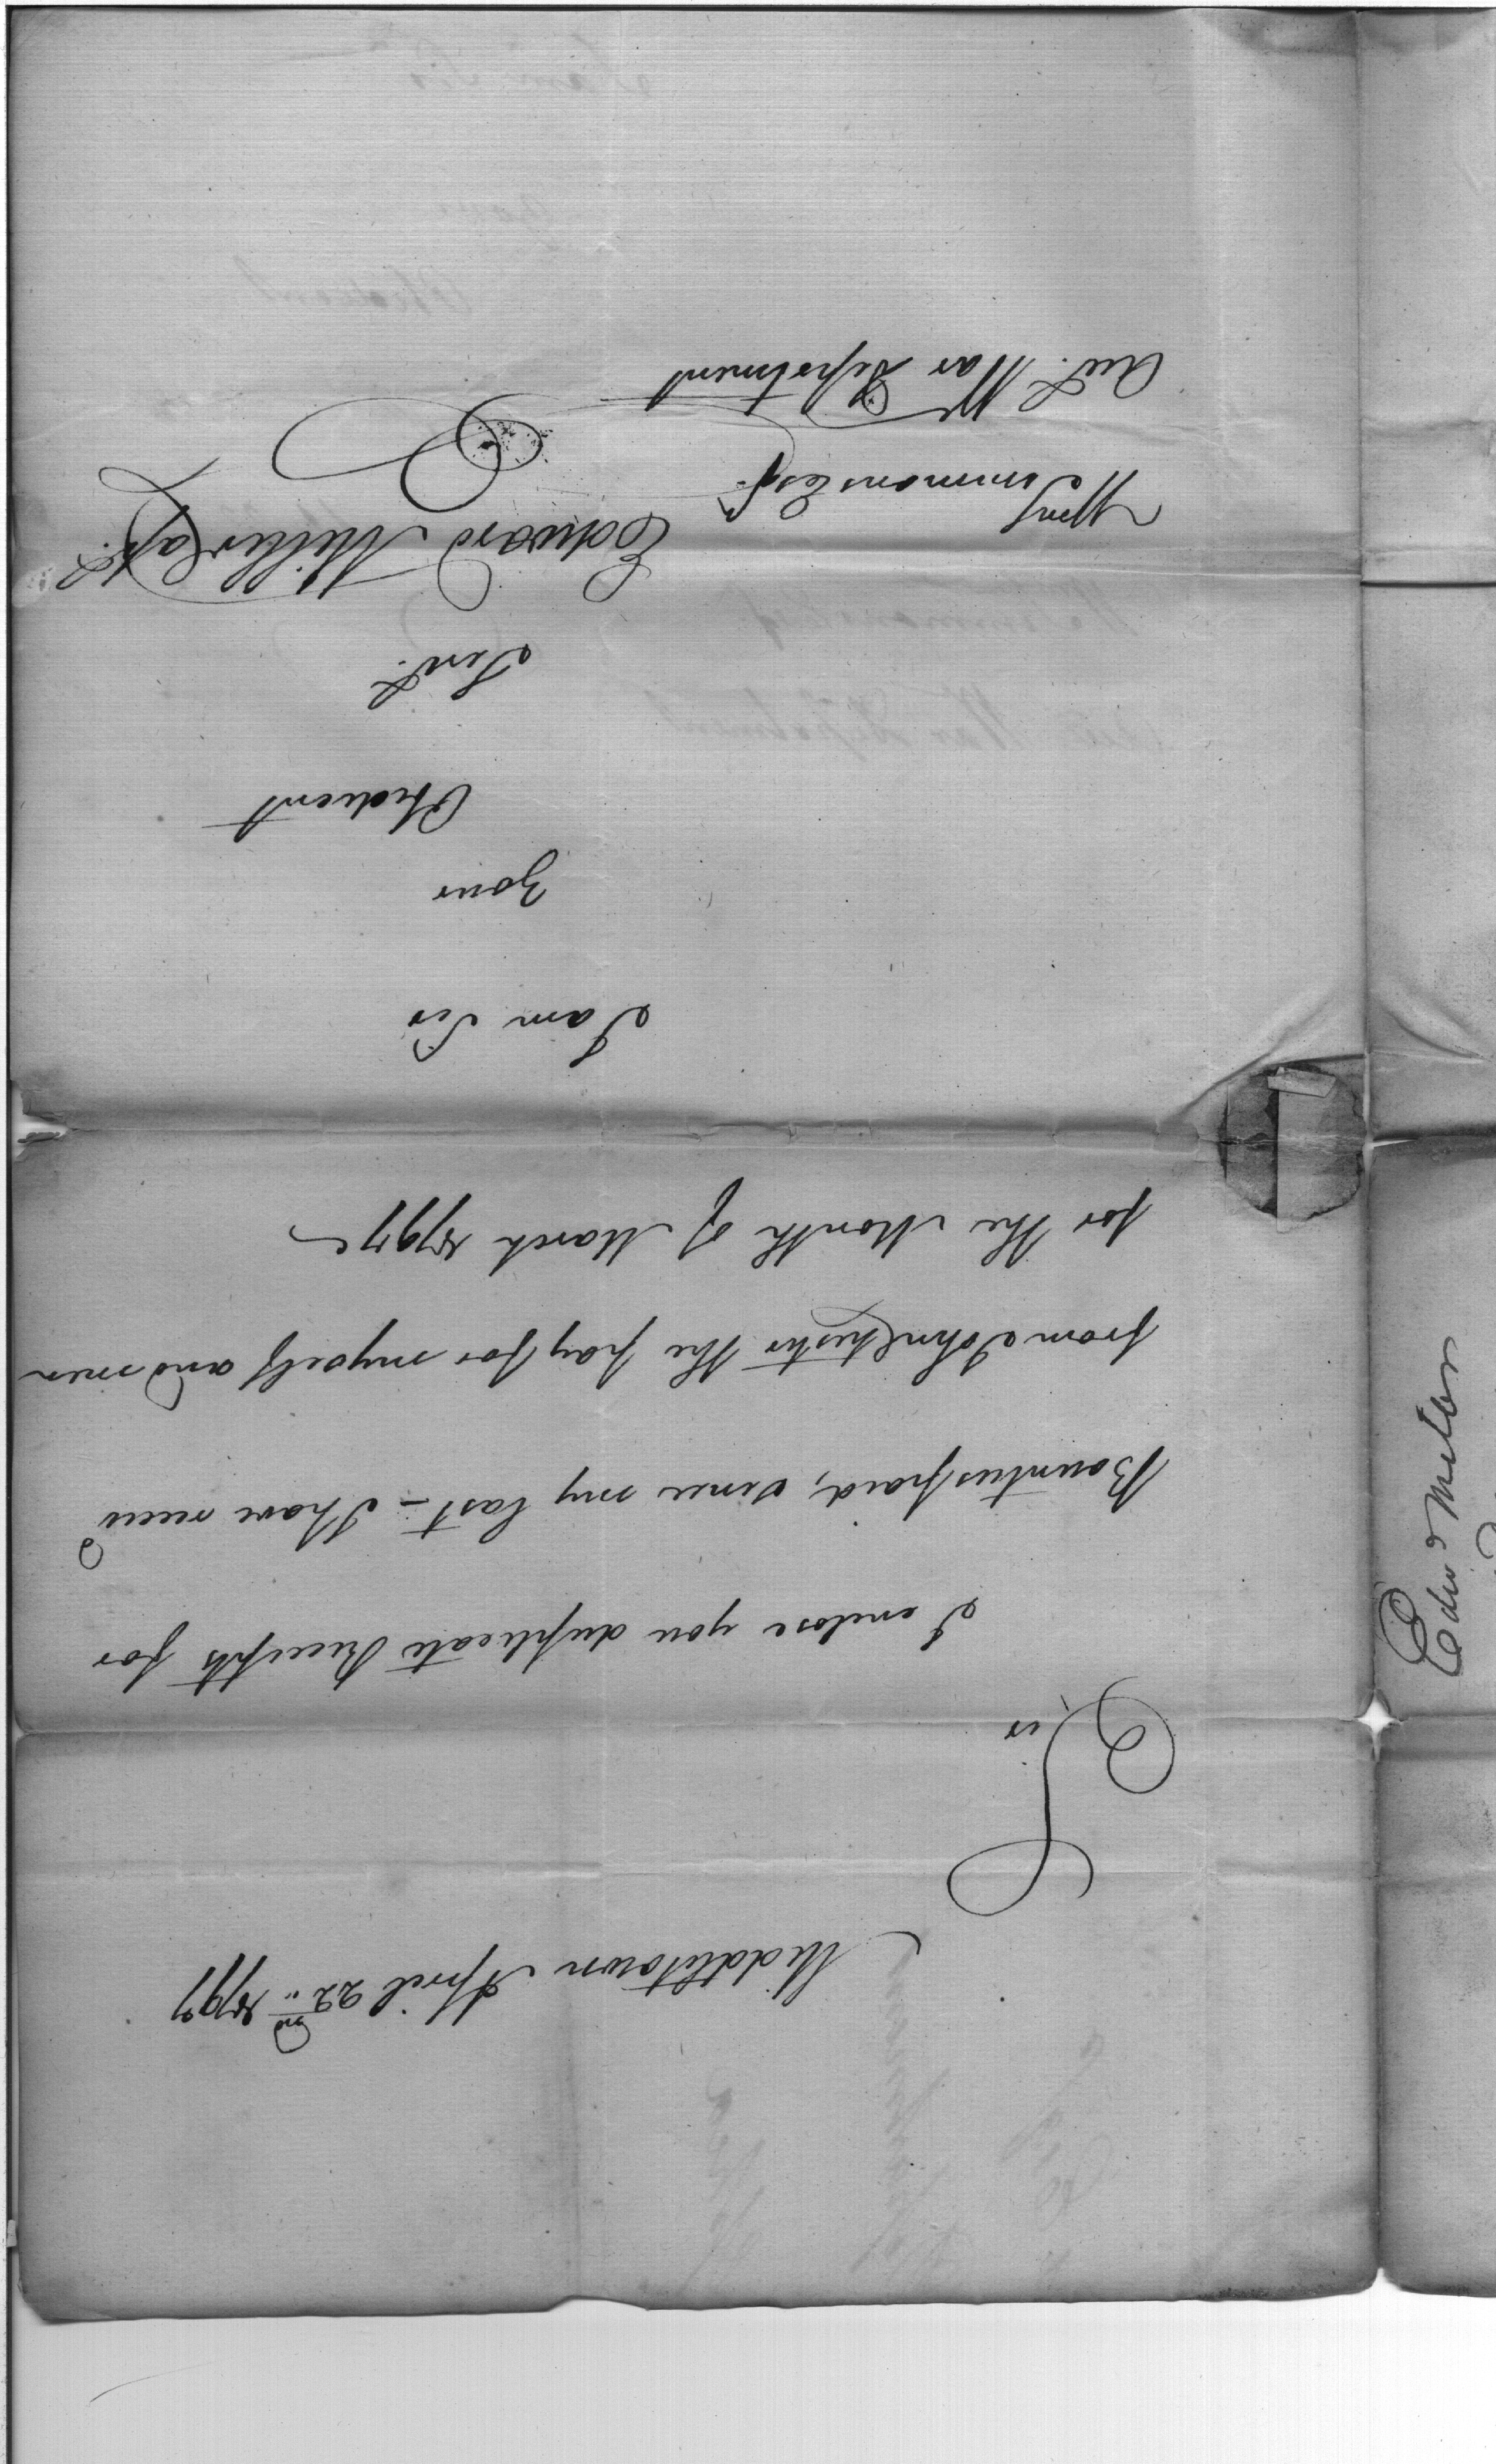 Middletown April 22nd 1797
Sir
I enclose you duplicate Receipts for
Bounties paid, since my last - I have receivd
from John Chester the pay for myself and men
for the Month of March 1797
I am Sir
Your
Obedient
Servt.
Edward Miller Capt.
Wm Simmons Esqr.
Acct. War Department
Edwd Miller